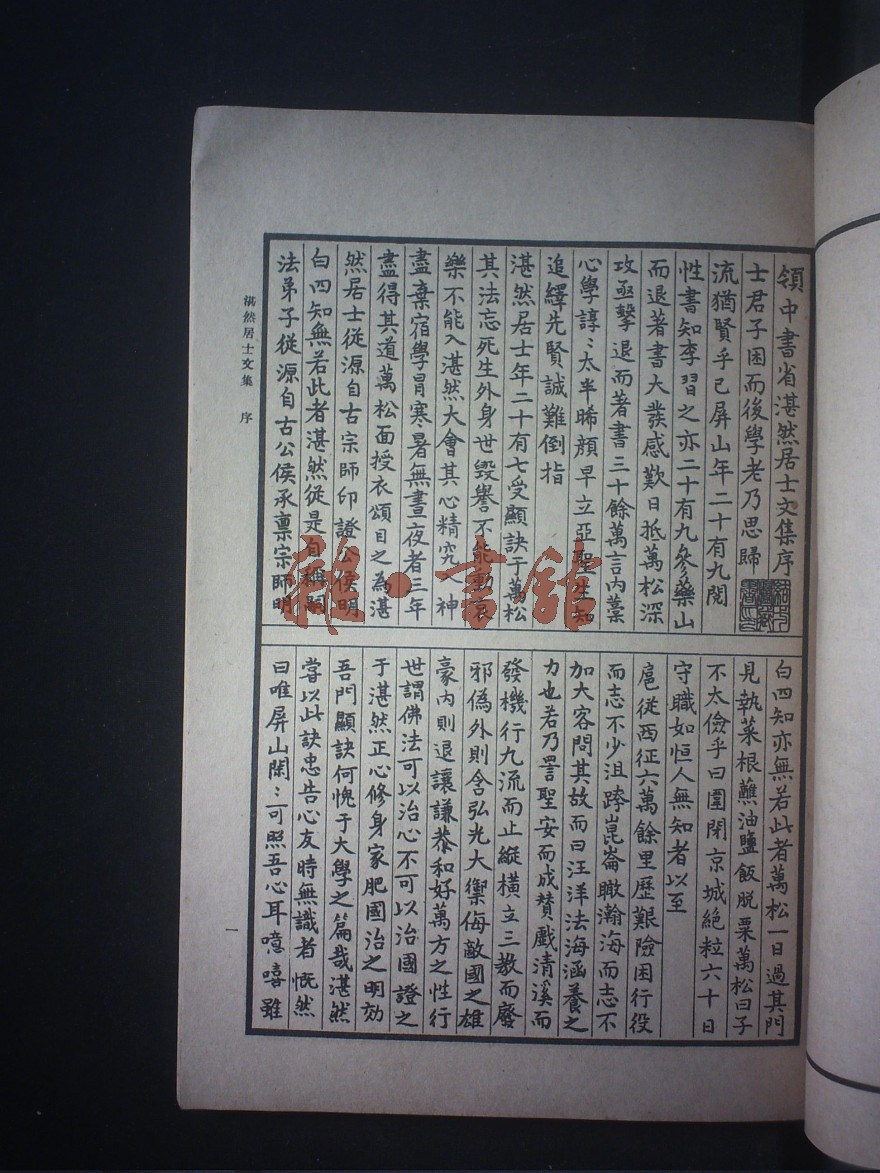 領中書省湛然居士文集序
士君子困而後學老乃思歸
流猶賢乎已屏山年二十有九閱
性書知李習之亦二十有九參藥山
而退著書大發感歎日抵萬松深
攻亟擊退而著書三十餘萬言內藁
心學諄〻太半晞顏早立亞聖生知
追繹先賢誠難倒指
湛然居士年二十有七受顯訣于萬松
其法忘死生外身世毀譽不能動哀
樂不能入湛然大會其心精究入神
盡棄宿學冒寒暑無晝夜者三年
盡得其道萬松面授衣頌目之為湛
然居士從源自古宗師印證公侯明
白四知無若此者湛然從是自稱嗣
法弟子從源自古公侯承稟宗師明
白四知亦無若此者萬松一日過其門
見執菜根蘸油鹽飯脫粟萬松曰子
不太儉乎曰圍閉京城絕粒六十日
守職如恒人無知者以至
扈從西征六萬餘里歷艱險困行役
而志不少沮跨崑崙瞰瀚海而志不
加大客問其故而曰汪洋法海涵養之
力也若乃詈聖安而成贊戲清溪而
發機行九流而止縱橫立三教而廢
邪偽外則含弘光大禦侮敵國之雄
豪內則退讓謙恭和好萬方之性行
世謂佛法可以治心不可以治國證之
于湛然正心修身家肥國治之明効
吾門顯訣何愧于大學之篇哉湛然
嘗以此訣忠告心友時無識者慨然
曰唯屏山閑〻可照吾心耳噫嘻雖
湛然居士文集 序
一
龍·書館